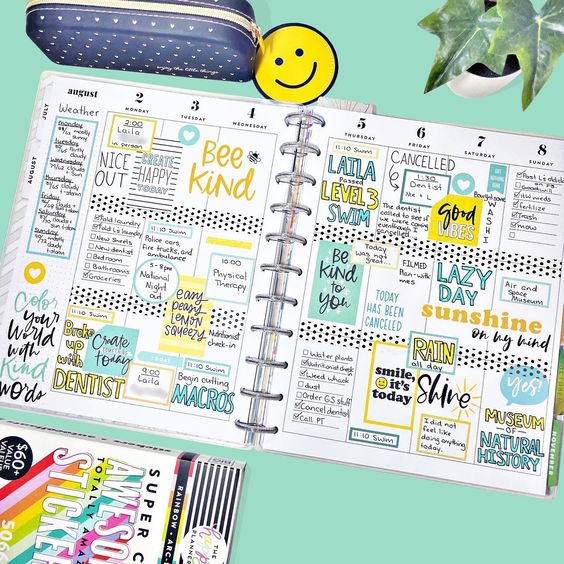 enjoy the little things
JULY
AUGUST
august
2
MONDAY
3
TUESDAY
4
WEDNESDAY
5
THURSDAY
6
FRIDAY
7
SATURDAY
8
SUNDAY
Weather
monday
mostly
sunny
Tuesday
Wednesday
Thursday
Friday
Saturday
Sunday
2:00
Laila
in person
NICE
OUT
CREATE
HAPPY
TODAY
Bee
Kind
Fold laundry
Fold L's laundry
New Sheets
New dentist
Bedroom
Bathrooms
Groceries
Police cars,
fire trucks,
and ambulance
5-8pm
National
Night
Out
10:00
Physical
Therapy
easy
peasy
lemon
squeezy
Nutritionist
check-in
Color
your
World
with
Kind
Words
Broke
up
with
DENTIST
Create
today
TODAY
9:00
Laila
11:10 Swim
Begin cutting
MACROS
11:10 Swim
LAILA
Passed
LEVEL 3
SWIM
CANCELLED
1:30
Dentist
Me + L
The dentist
called to see if
we were coming
eventually
cancelled
good
VIBES
Bought some
Post L's added
on FS
goodwill
HW meds
fertilize
Trash
mow
Be
Kind
to
you
Today was
not great
TODAY
HAS BEEN
CANCELLED
FILMED
Plan-with-
mes
LAZY
DAY
sunshine
on my mind
Air and
Space
Museum
Water plants
Nutrition
Weed whack
dust
Order G.S. stuff
Cancel dentist
Call PT
11:10 Swim
smile,
it's
today
RAIN
all day
Shine
I did not
feel like
doing anything
today.
yes!
MUSEUM
OF
NATURAL
HISTORY
NOVEMBER
$60+
VALUE
SUPER
AWESOME
TOTALLY
STICKER
RAINBOW
THE
happy
PLANNER